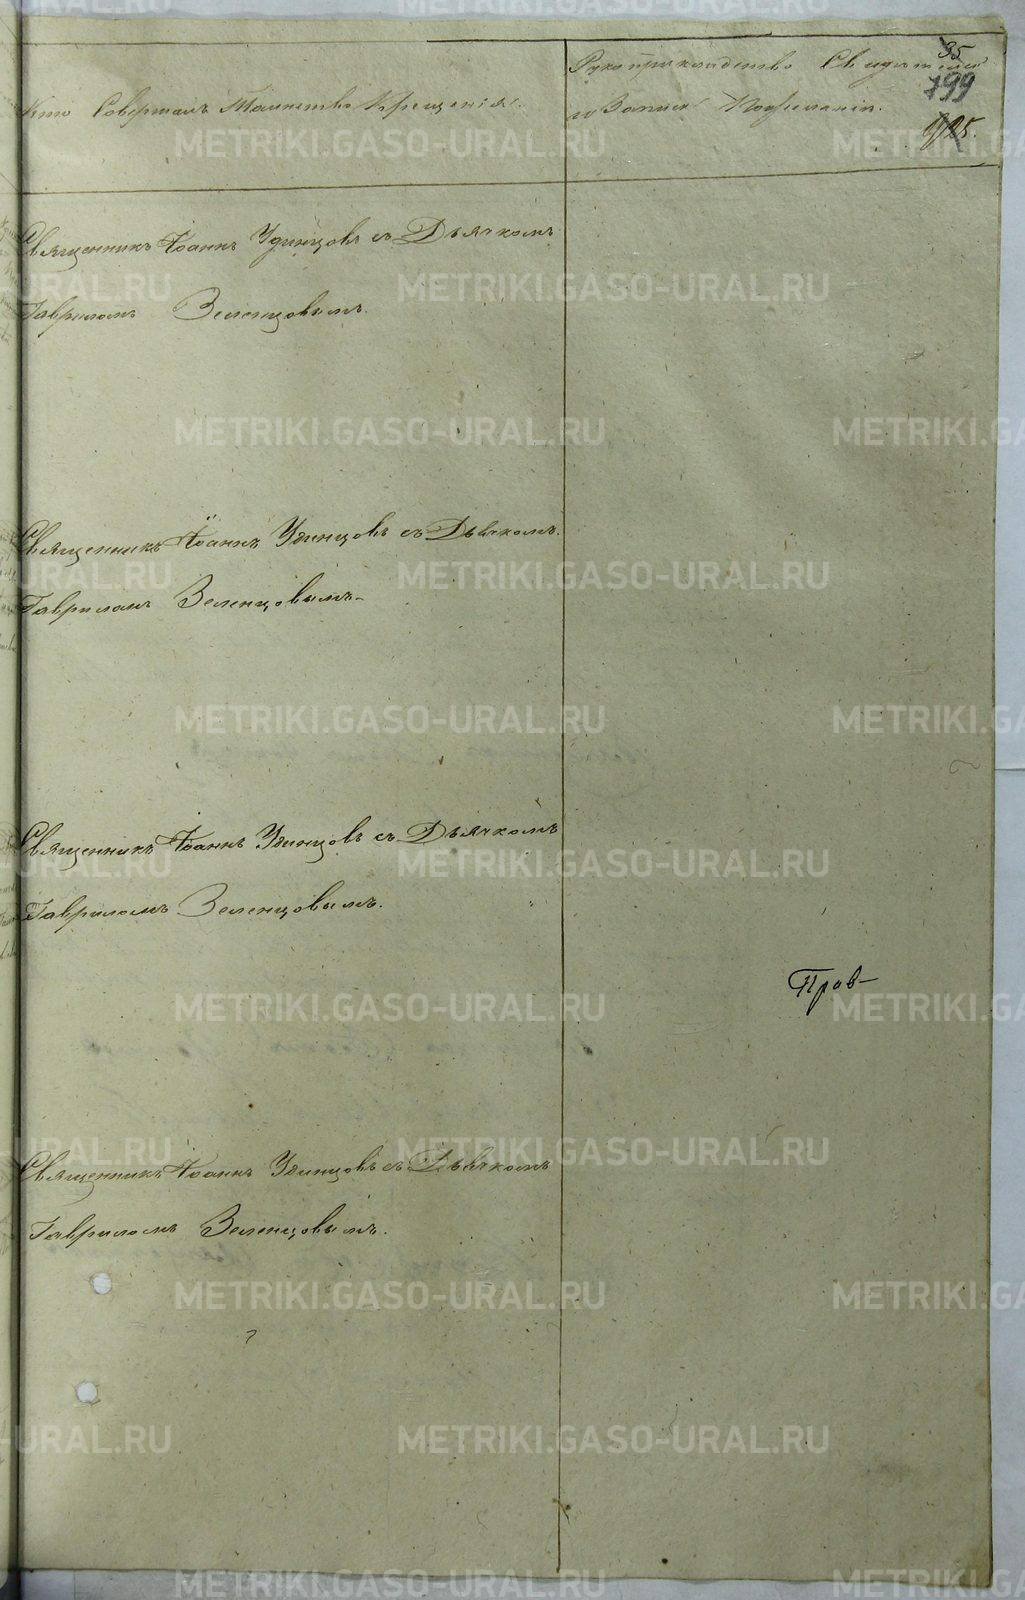 35
799
Кто Совершалъ Таинство Крещенія.
Рукоприкладство Свидѣтелей
и Записи Пожеланію.
Священникъ Іоаннъ Удинцовъ съ Дьячкомъ
Гавриломъ Зеленцовымъ.
Священникъ Іоаннъ Удинцовъ съ Дьячкомъ.
Гавриломъ Зеленцовымъ.
Священникъ Іоаннъ Удинцовъ съ Дьячкомъ
Гавриломъ Зеленцовымъ.
Пров-
Священникъ Іоаннъ Удинцовъ съ Дьячкомъ
Гавриломъ Зеленцовымъ.
METRIKI.GASO-URAL.RU